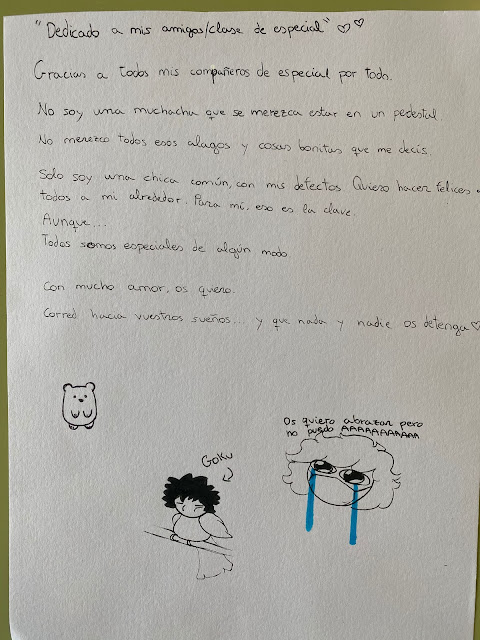 "Dedicado a mis amigas/clase de especial" ♡♡
Gracias a todos mis compañeros de especial por todo.
No soy una muchacha que se merezca estar en un pedestal.
No merezco todos esos alagos y cosas bonitas que me decís.
Solo soy una chica común, con mis defectos. Quiero hacer felices a
todos a mi alrededor. Para mí, eso es la clave.
Aunque...
Todos somos especiales de algún modo.
Con mucho amor, os quero...
Corred hacia vuestros sueños... y que nada y nadie os detenga ♡
Os quiero abrazar pero
no puedo AAAAAAAAAAA
Goku